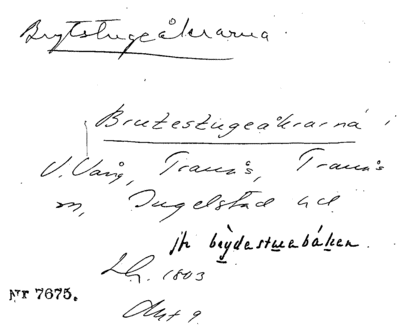 Brytstugeåkrarna
Brutestugeåkrarna i
V. Vång, Tranås, Tranås
sn, Ingelstad hd
jfr brydestuebåken.
Lh. 1803
Akt 9
Nr 7675.